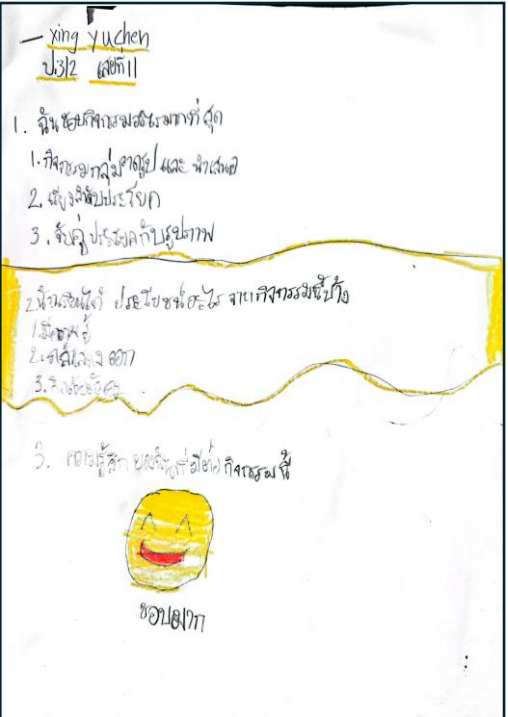 xing Yuchen
ป.3/2 เลขที่ 11
1. ฉันชอบกิจกรรมอะไรมากที่สุด
1. กิจกรรมกลุ่มวาดรูป และ นำเสนอ
2. เรียงลำดับประโยค
3. จับคู่ ประโยคกับรูปภาพ
2. นักเรียนได้ ประโยชน์อะไร จากกิจกรรมนี้บ้าง
1. มีความรู้
2. กล้าแสดง ออก
3.
3. ความรู้สึก ของฉันที่มีต่อ กิจกรรมนี้
ชอบมาก